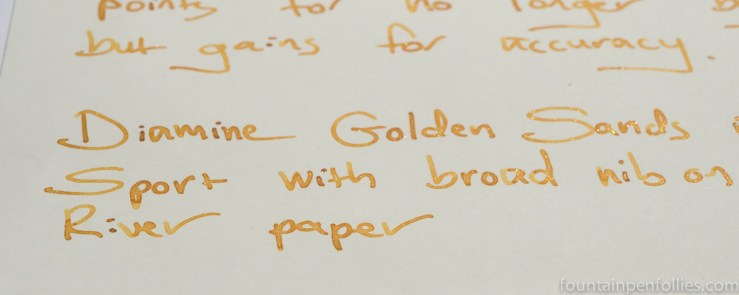 points for no longer
but gains for accuracy.
Diamine Golden Sands
Sport with broad nib on
River paper
fountainpenfollies.com